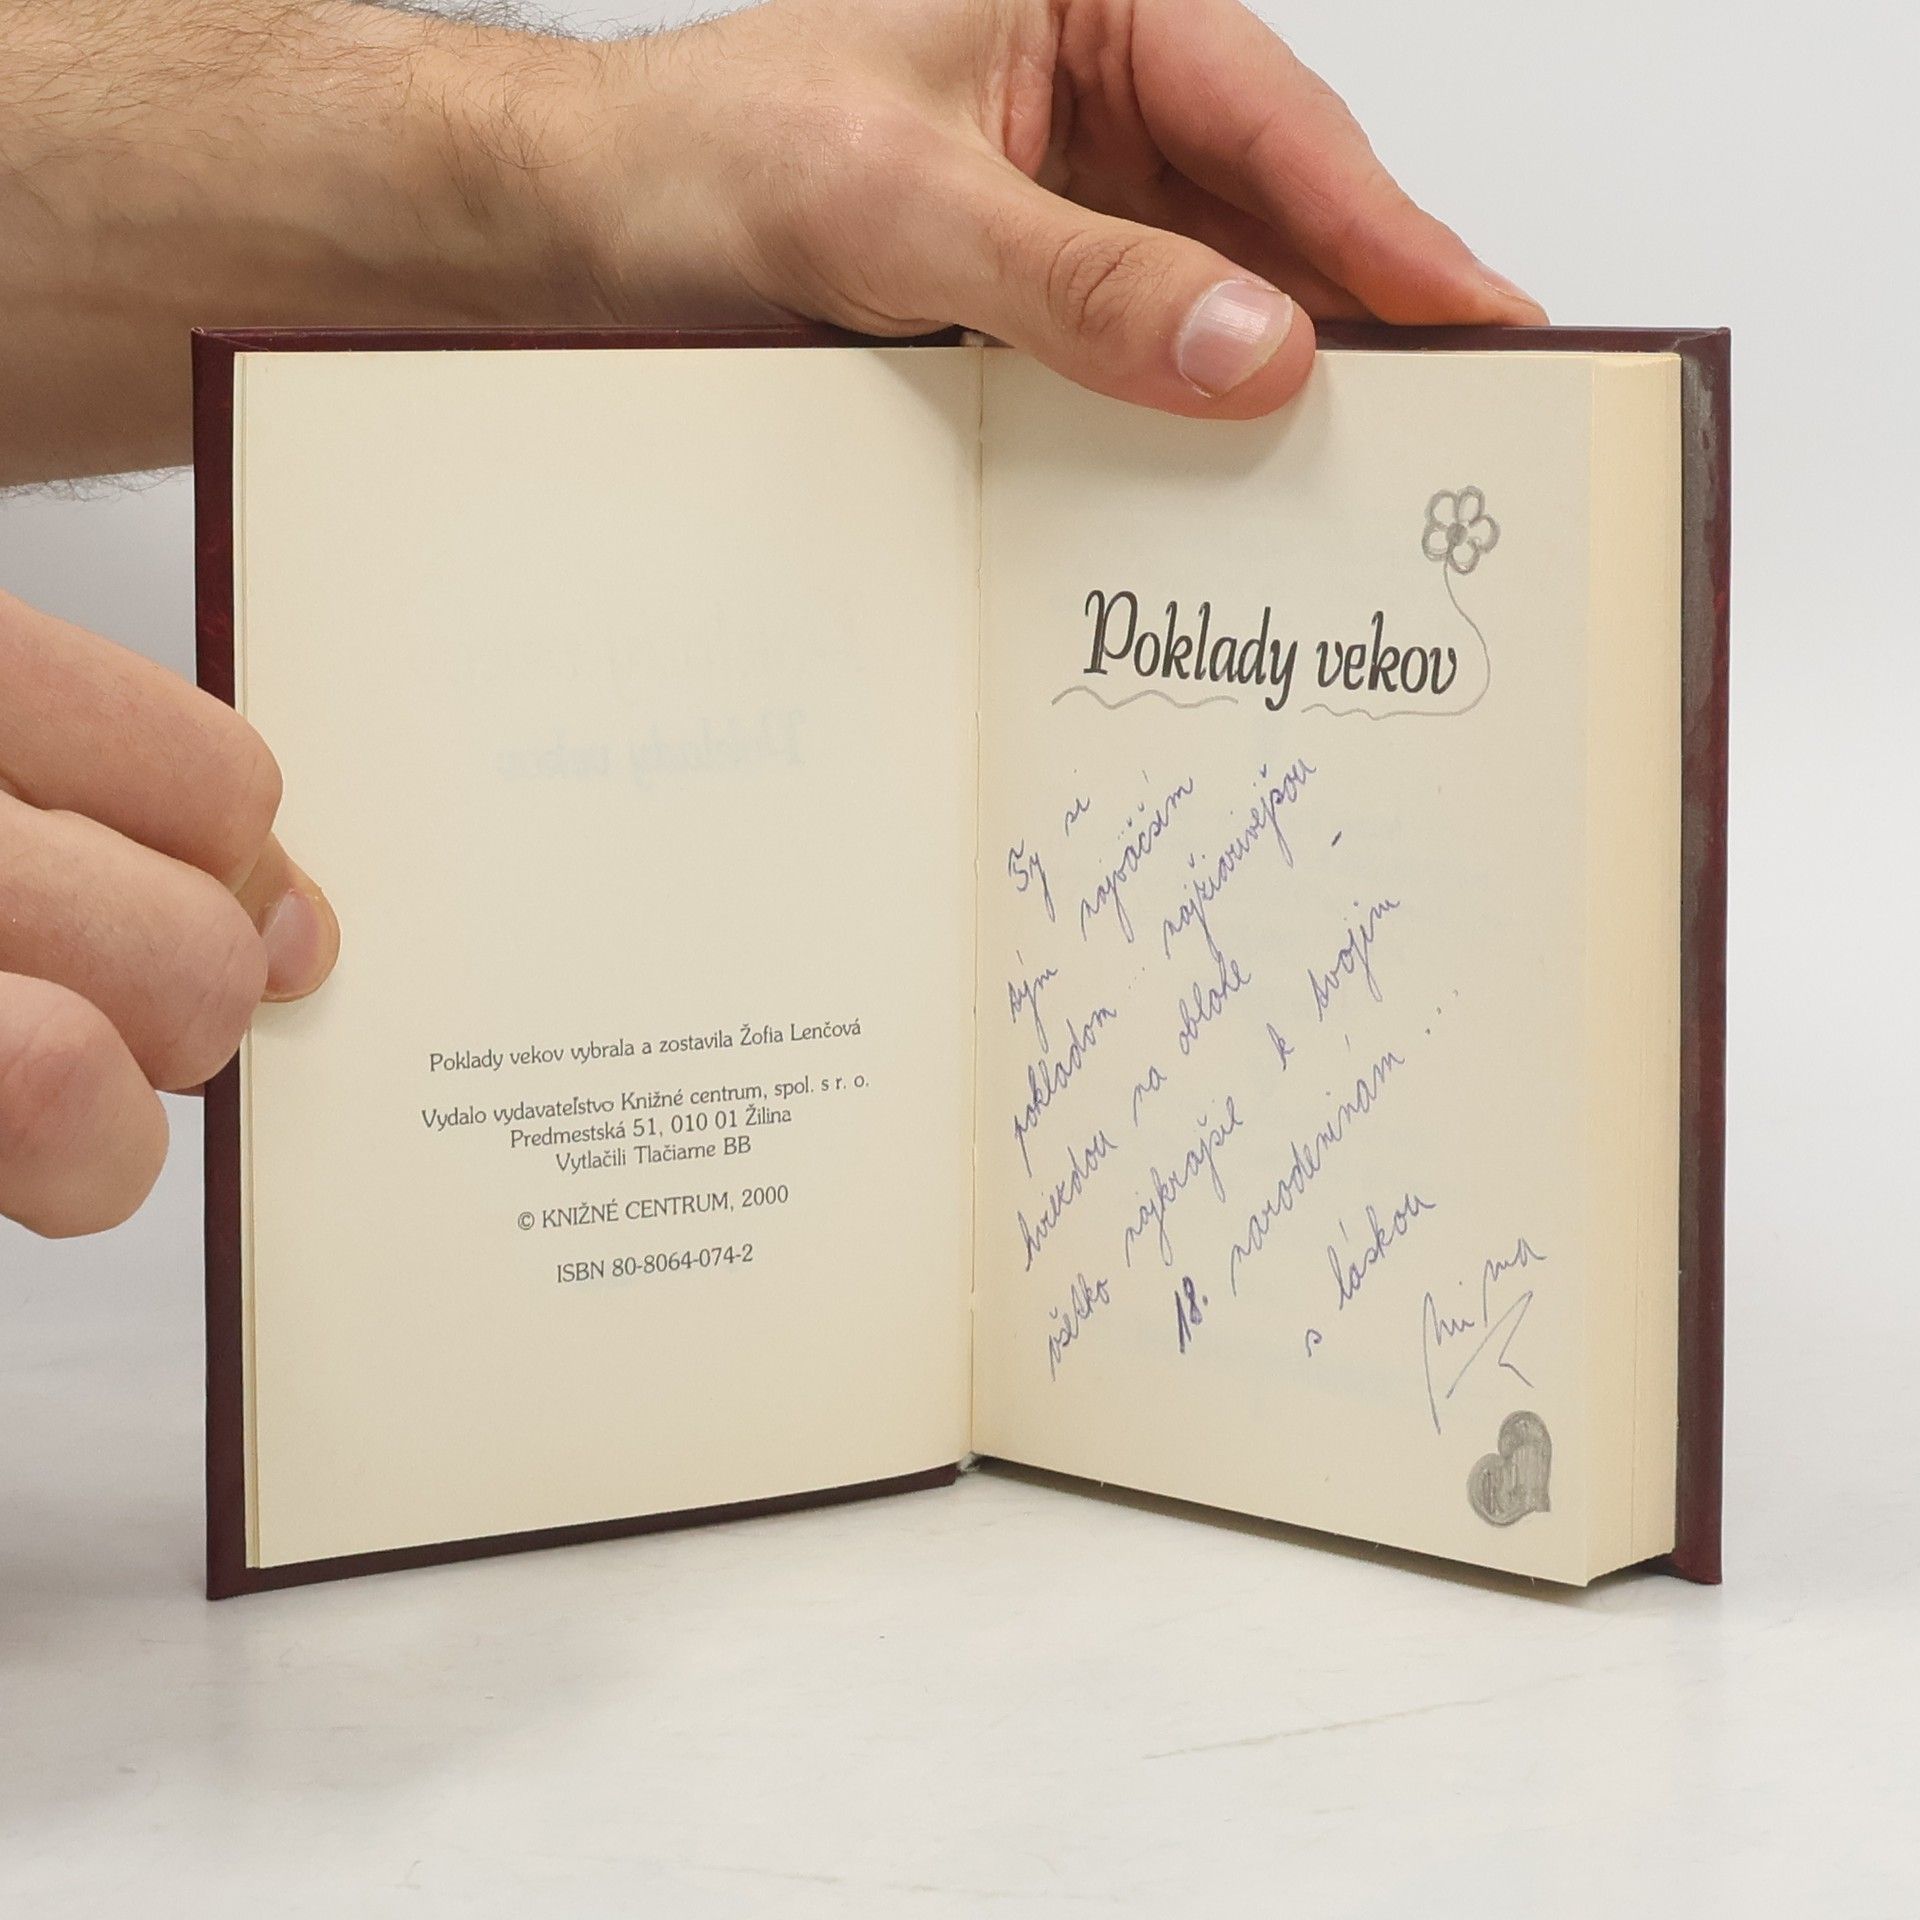 Poklady vekov vybrala a zostavila Žofia Lenčová
Vydalo vydavateľstvo Knižné centrum, spol. s r. o.
Predmestská 51, 010 01 Žilina
Vytlačili Tlačiarne BB
© KNIŽNÉ CENTRUM, 2000
ISBN 80-8064-074-2
Poklady vekov
Ty si
tým najväčším
pokladom ... najžiarivejšou
hviezdou na oblohe -
všetko najkrajšie k tvojim
18. narodeninám ...
s láskou